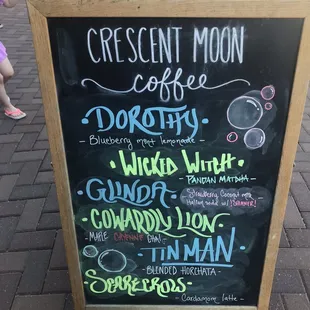 CRESCENT MOON
coffee
DOROTHY
- Blueberry mint lemonade -
WICKED WITCH
- PANDAN MATCHA -
GLINDA
Strawberry Coconut milk
Italian soda w/ SHIMMER!
COWARDLY LION
- MAPLE CHAI -
TIN MAN
- BLENDED HORCHATA -
SCARECROW
- Cardamom latte -